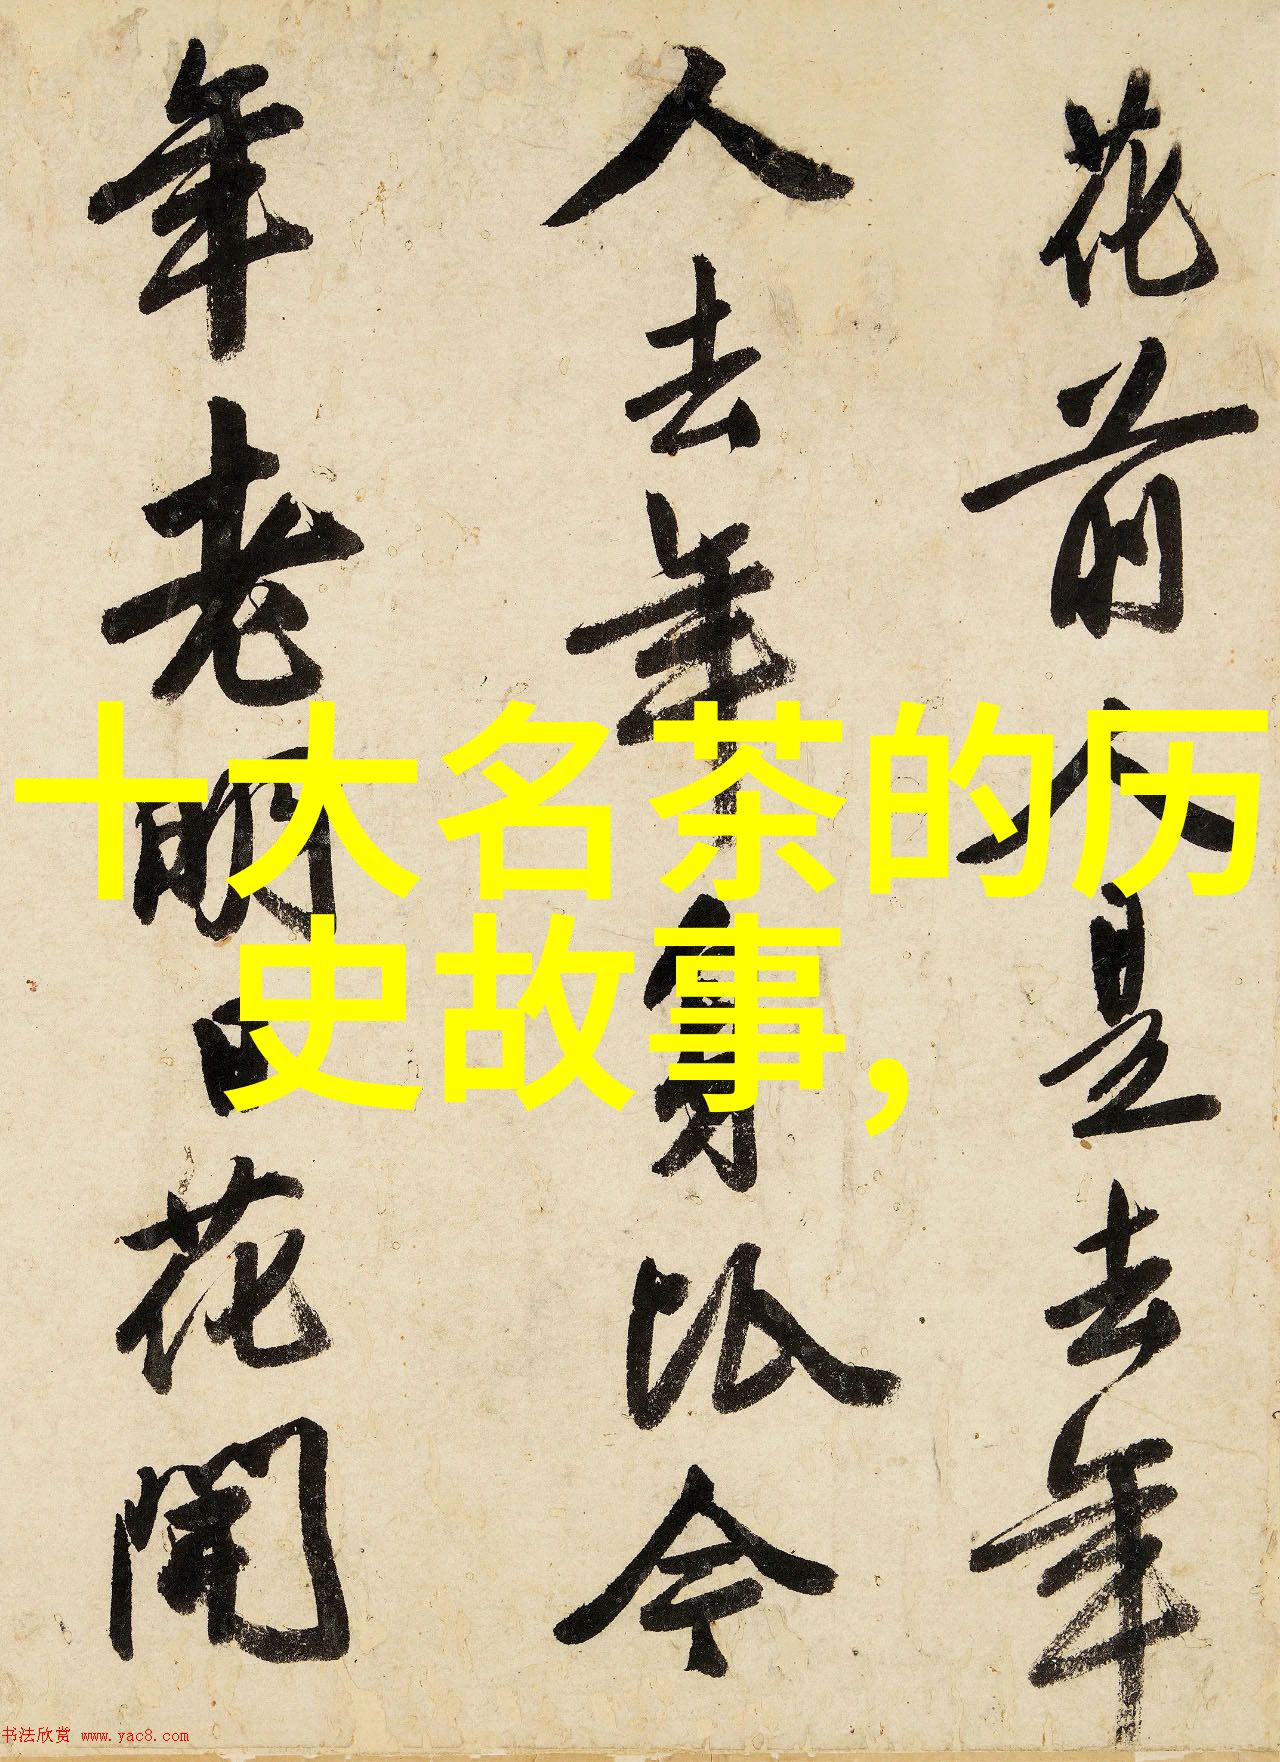 花前人是去年
人去年身比今
年老明日花開
十大名茶的历
史故事,
书法欣赏 www.yac8.com